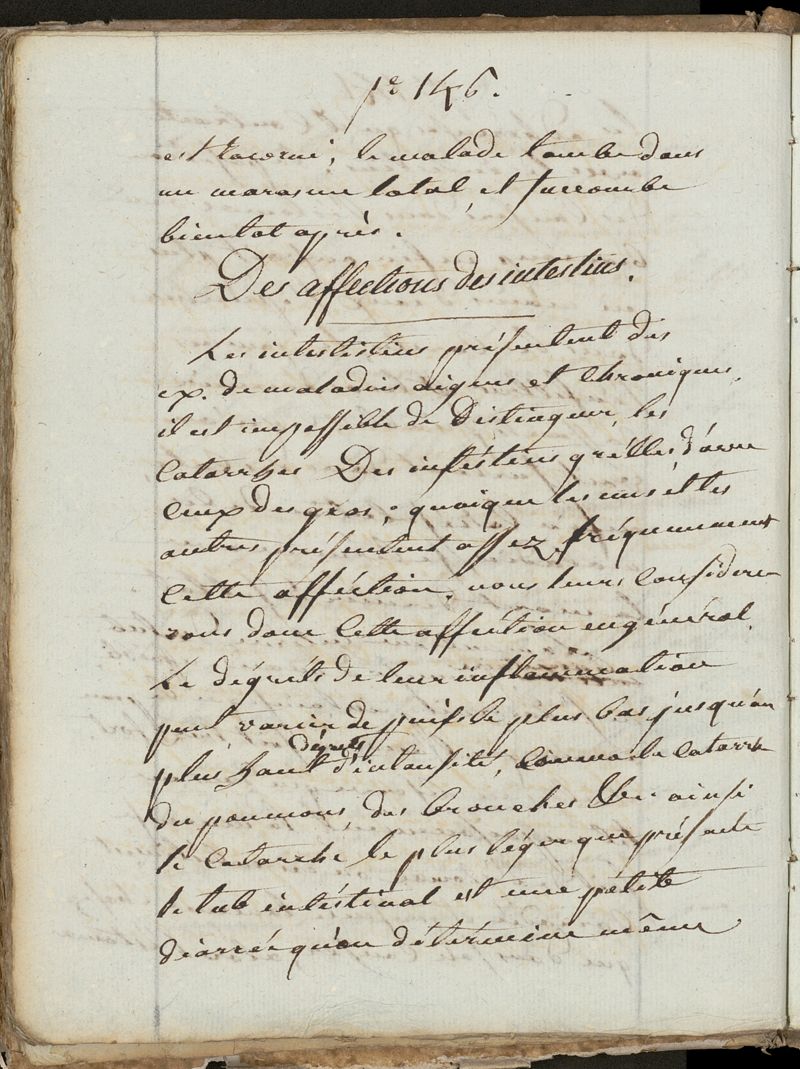 pe 146.
est racorni, le malade tombe dans
un marasme total, et succombe
bientot après.
Des affections des intestins.
Les intestistins présentent des
ex. de maladies aigues et chroniques,
il est impossible de distinguer les
catarrhes des intéstins grélles d'avec
ceux des gros; quoique les uns et les
autres présentent assez fréquemment
cette afféction, nous leurs considere-
rons donc cette afféction en général.
Le dégrés de leur inflammation
peut varier depuis le plus bas jusqu'au
plus haut dégrés d'intensité, comme le catarrhe
du poumons, des bronches &c. ainsi
le catarrhe le plus léger que présente
le tub intéstinal est une pétite
diarrée qu'on détérmine même